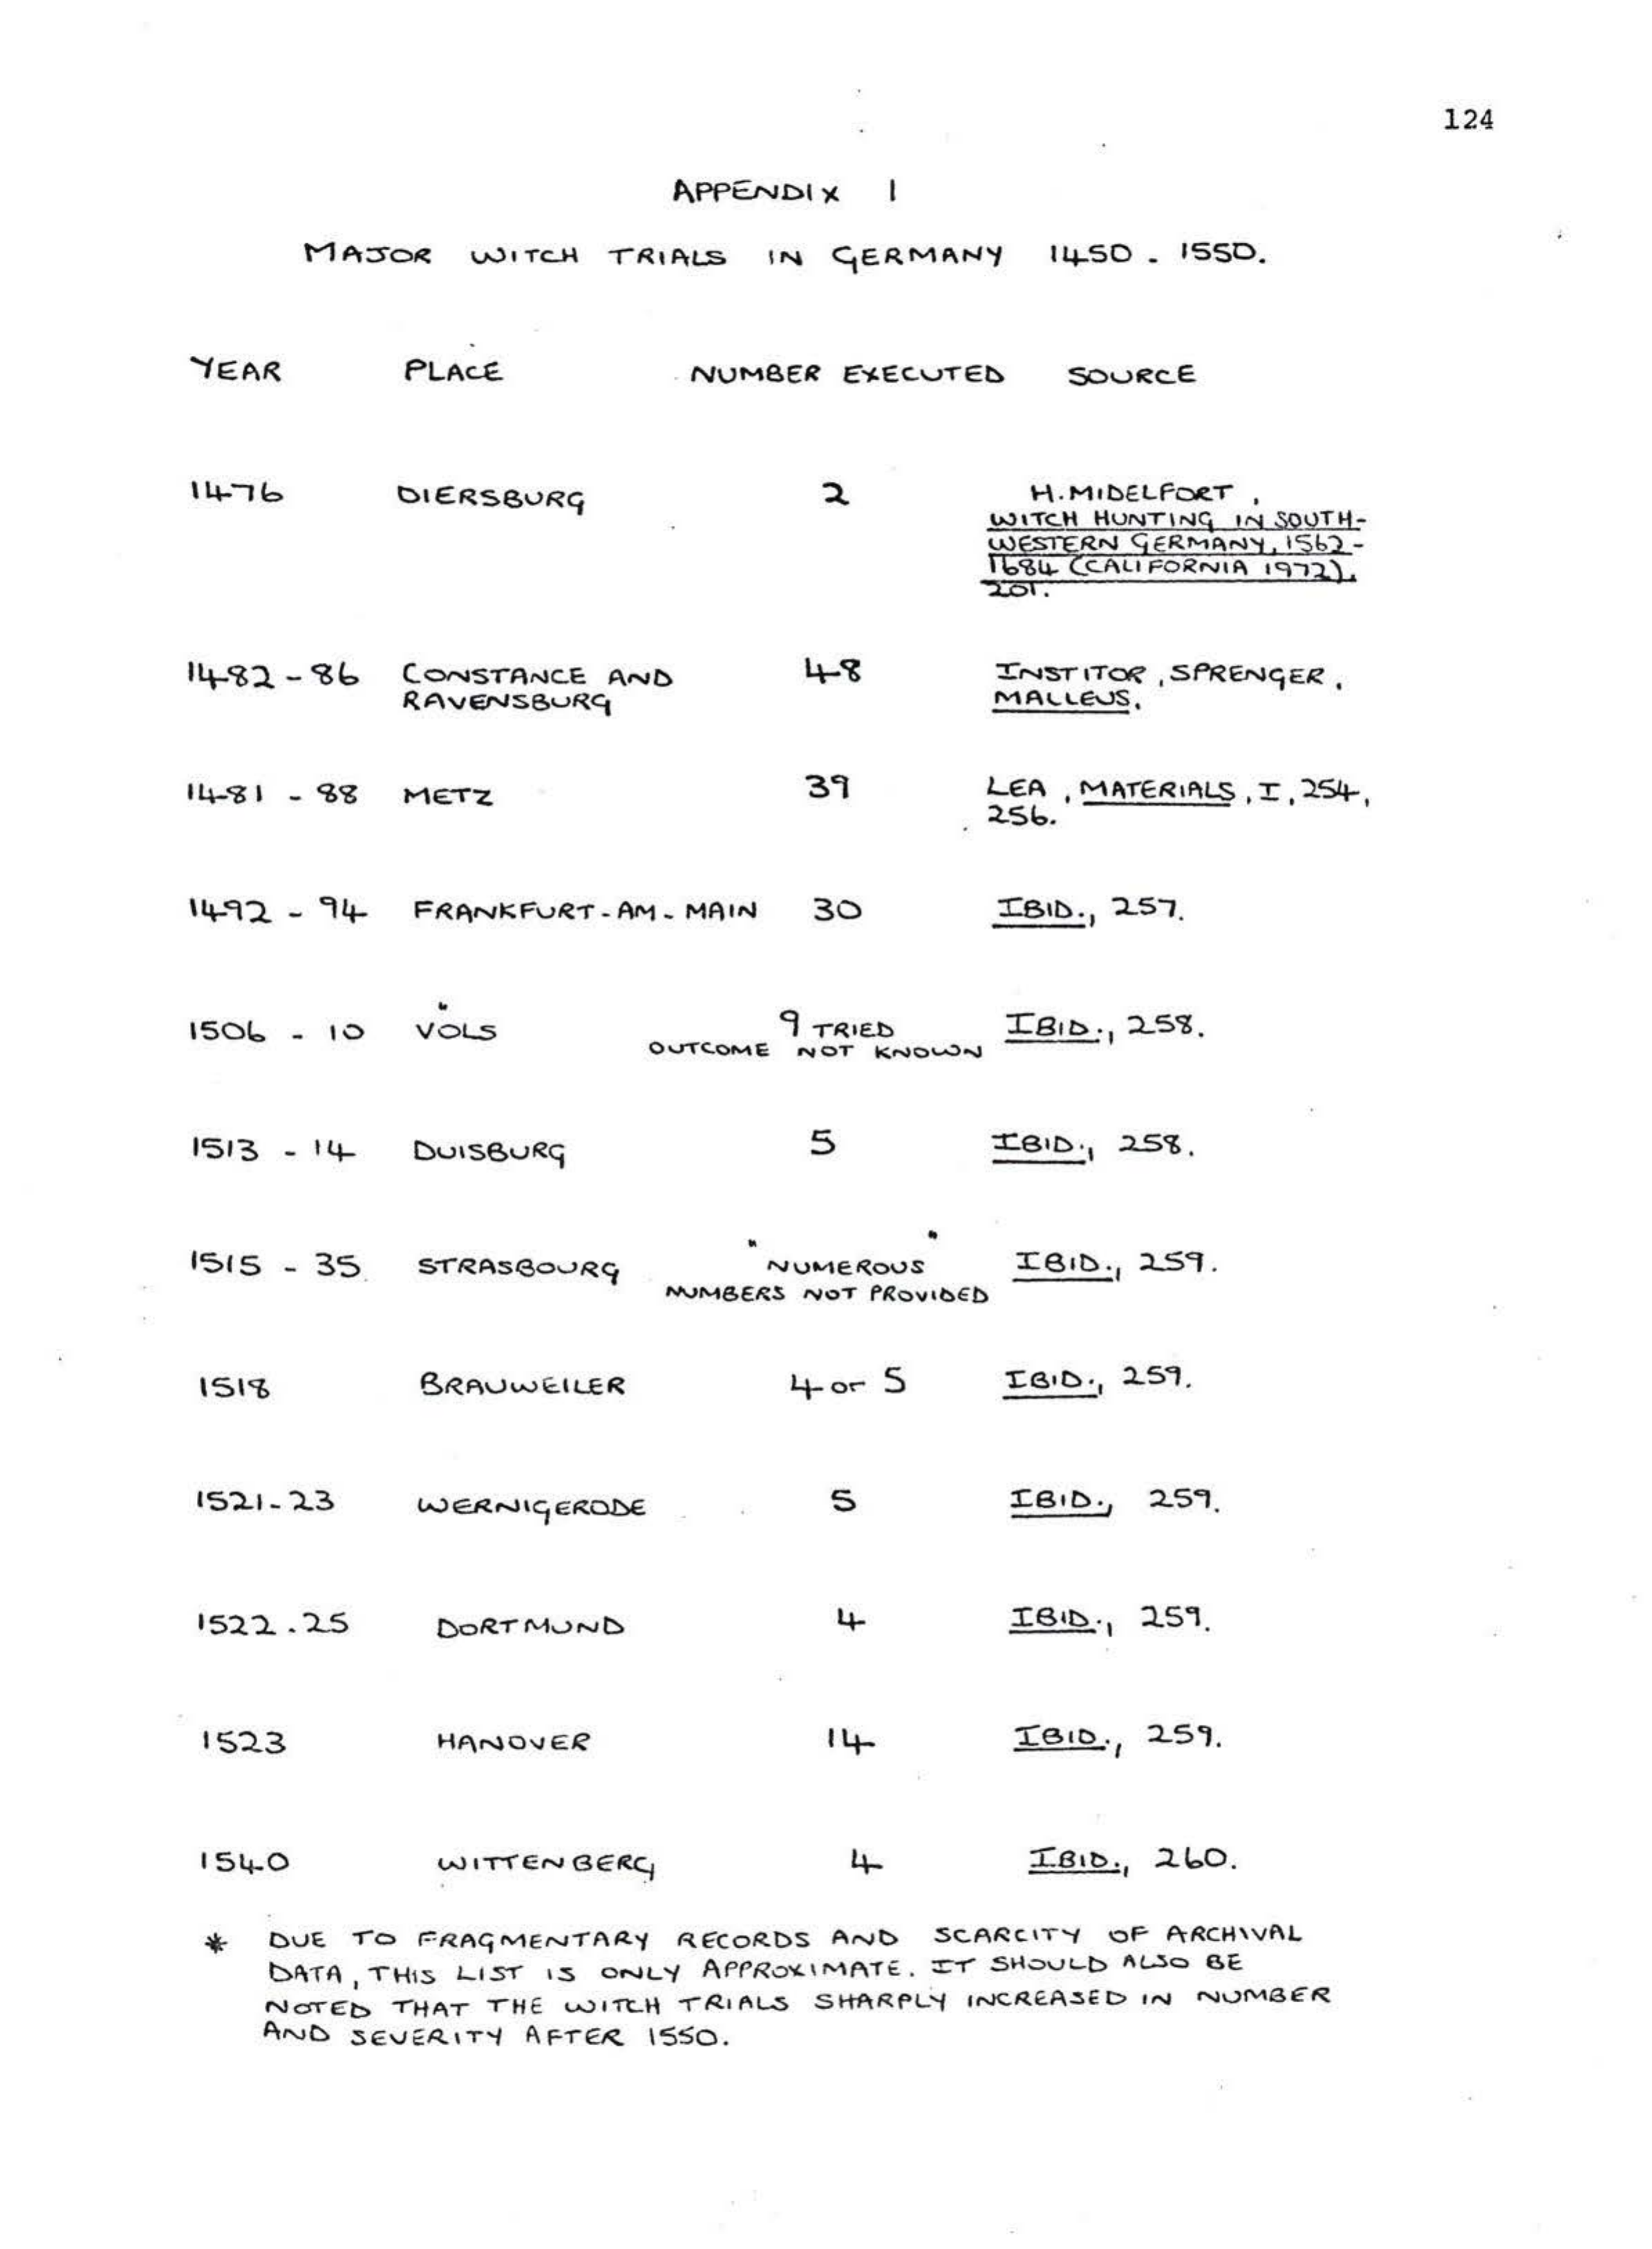 124
APPENDIX 1
MAJOR WITCH TRIALS IN GERMANY 1450 - 1550.
YEAR PLACE NUMBER EXECUTED SOURCE
1476 DIERSBURG 2 H. MIDELFORT,
WITCH HUNTING IN SOUTH-
WESTERN GERMANY, 1562-
1684 (CALIFORNIA 1972),
201.
1482-86 CONSTANCE AND 48 INSTITOR, SPRENGER,
RAVENSBURG MALLEUS.
1481 - 88 METZ 39 LEA, MATERIALS, I, 254,
256.
1492 - 94 FRANKFURT-AM-MAIN 30 IBID., 257.
1506 - 10 VÖLS 9 TRIED IBID., 258.
OUTCOME NOT KNOWN
1513 - 14 DUISBURG 5 IBID., 258.
1515 - 35 STRASBOURG "NUMEROUS" IBID., 259.
NUMBERS NOT PROVIDED
1518 BRAUWEILER 4 or 5 IBID., 259.
1521-23 WERNIGERODE 5 IBID., 259.
1522-25 DORTMUND 4 IBID., 259.
1523 HANOVER 14 IBID., 259.
1540 WITTENBERG 4 IBID., 260.
* DUE TO FRAGMENTARY RECORDS AND SCARCITY OF ARCHIVAL
DATA, THIS LIST IS ONLY APPROXIMATE. IT SHOULD ALSO BE
NOTED THAT THE WITCH TRIALS SHARPLY INCREASED IN NUMBER
AND SEVERITY AFTER 1550.